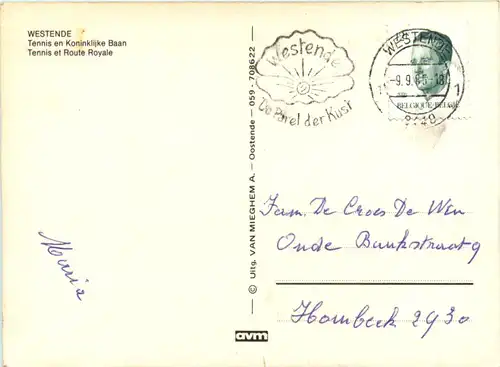 WESTENDE
Tennis en Koninklijke Baan
Tennis et Route Royale
Westende
De Parel der Kust
WESTENDE
-9.9.85-18
1
BELGIQUE-BELGIË
© Uitg. VAN MIEGHEM A. — Oostende — 059-708622
avm
Maria
Fam. De Croes De Wen
Oude Bankstraat 9
Hombeek 2930